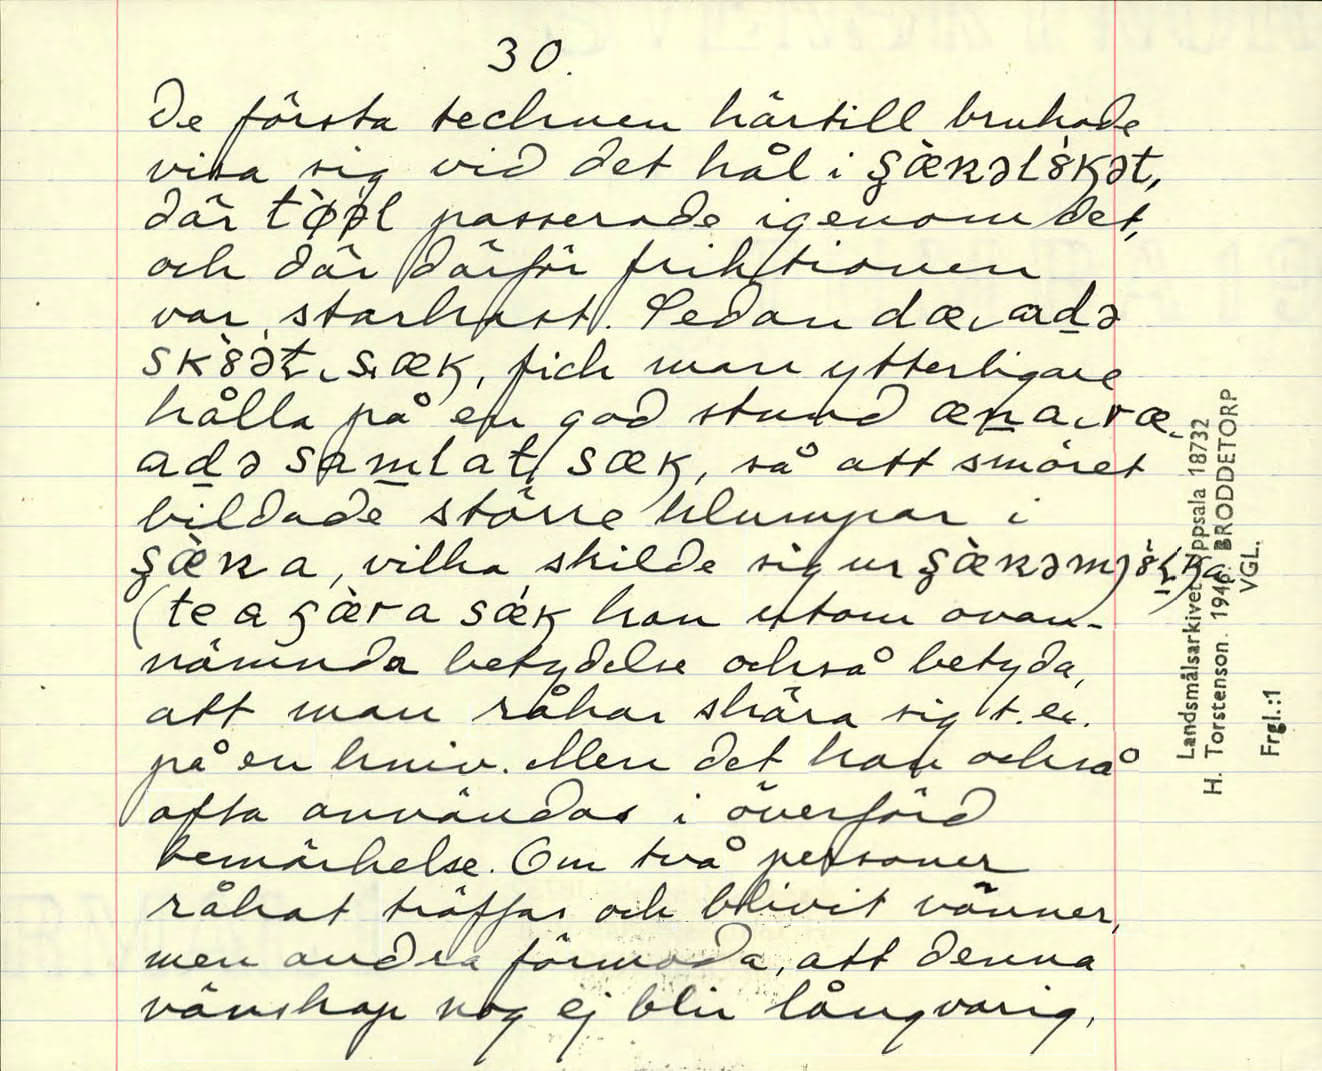 30.
De första tecknen härtill brukade
visa sig vid det hål i ʂæ̀nəlȣ̀kət,
där tø̀pəl passerade igenom det,
och där därför friktionen
var starkast. Sedan dæ, adə
skȣ̀ət, sæk, fick man ytterligare
hålla på en god stund æna, ræ,
adə samlat sæk, så att smöret
bildade större klumpar i
ʂæ̀na, vilka skilde sig ur
(te a ʂæ̀ra sæ̀k kan utom ovan-
nämnda betydelse också betyda,
att man råkar skära sig t. ex.
på en kniv. Men det kan också
ofta användas i överförd
bemärkelse. Om två personer
råkat träffas och blivit vänner,
men andra förmoda, att denna
vänskap nog ej blir långvarig,
Landsmålsarkivet Uppsala 18732
H. Torstenson. 1946. BRODDETORP
VGL.
Frgl.:1